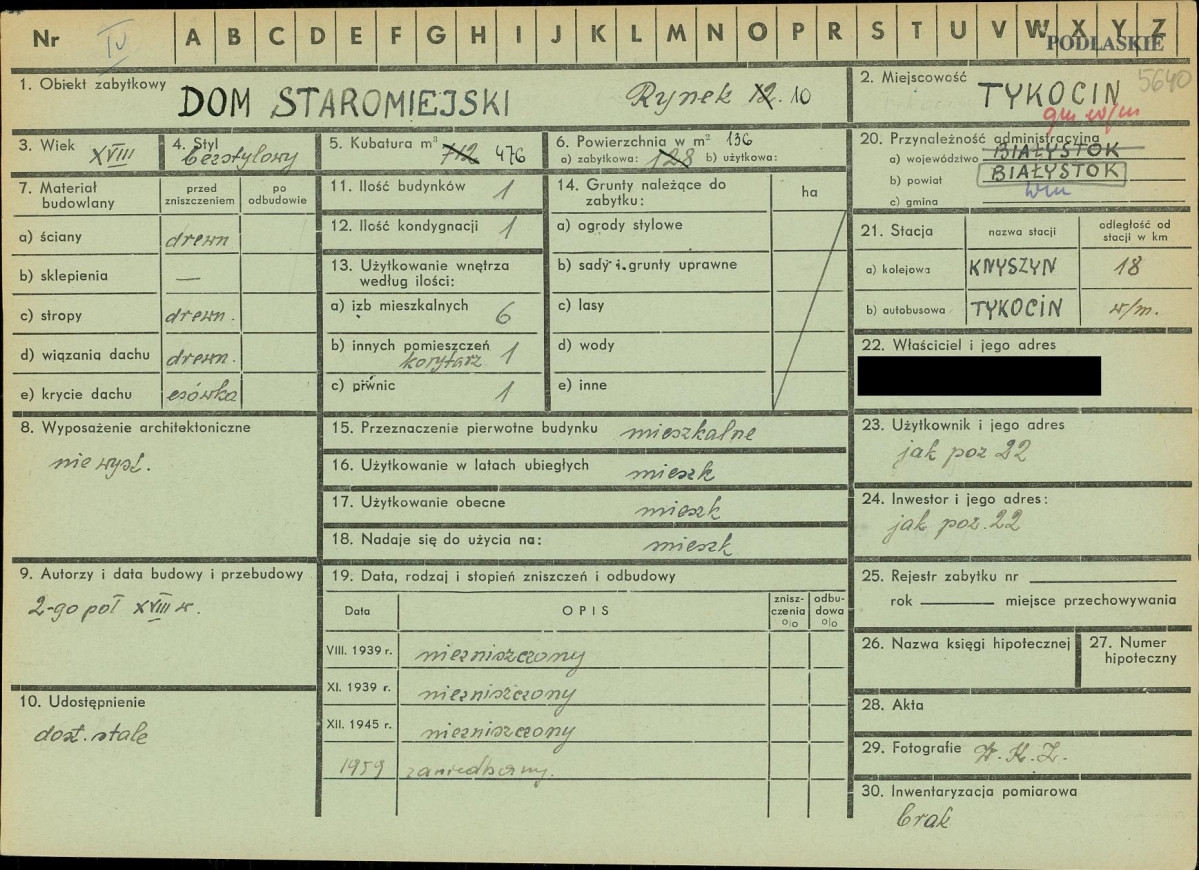 Nr IV A B C D E F G H I J K L M N O P R S T U V W X Y Z
PODLASKIE
5640
1. Obiekt zabytkowy DOM STAROMIEJSKI Rynek 12. 10
2. Miejscowość TYKOCIN
gm w/m
3. Wiek XVIII
4. Styl bezstylowy
5. Kubatura m³ 712 476
6. Powierzchnia w m² 136
a) zabytkowa: 128 b) użytkowa:
7. Materiał budowlany
przed zniszczeniem
po odbudowie
a) ściany drewn
b) sklepienia —
c) stropy drewn.
d) wiązania dachu drewn.
e) krycie dachu esówka
8. Wyposażenie architektoniczne
nie wyst.
9. Autorzy i data budowy i przebudowy
2-go poł XVIII w.
10. Udostępnienie
dost. stale
11. Ilość budynków 1
12. Ilość kondygnacji 1
13. Użytkowanie wnętrza
według ilości:
a) izb mieszkalnych 6
b) innych pomieszczeń 1
korytarz
c) piwnic 1
14. Grunty należące do
zabytku:
ha
a) ogrody stylowe
b) sady i grunty uprawne
c) lasy
d) wody
e) inne
15. Przeznaczenie pierwotne budynku mieszkalne
16. Użytkowanie w latach ubiegłych mieszk
17. Użytkowanie obecne mieszk
18. Nadaje się do użycia na: mieszk
19. Data, rodzaj i stopień zniszczeń i odbudowy
Data
OPIS
znisz-
czenia
o|o
odbu-
dowa
o|o
VIII. 1939 r. niezniszczony
XI. 1939 r. niezniszczony
XII. 1945 r. niezniszczony
1959 zaniedbany.
20. Przynależność administracyjna
a) województwo BIAŁYSTOK
b) powiat BIAŁYSTOK
c) gmina w/m
21. Stacja
nazwa stacji
odległość od
stacji w km
a) kolejowa KNYSZYN 18
b) autobusowa TYKOCIN w/m.
22. Właściciel i jego adres
23. Użytkownik i jego adres
jak poz 22
24. Inwestor i jego adres:
jak poz. 22
25. Rejestr zabytku nr
rok miejsce przechowywania
26. Nazwa księgi hipotecznej
27. Numer
hipoteczny
28. Akta
29. Fotografie W. K. Z.
30. Inwentaryzacja pomiarowa
brak